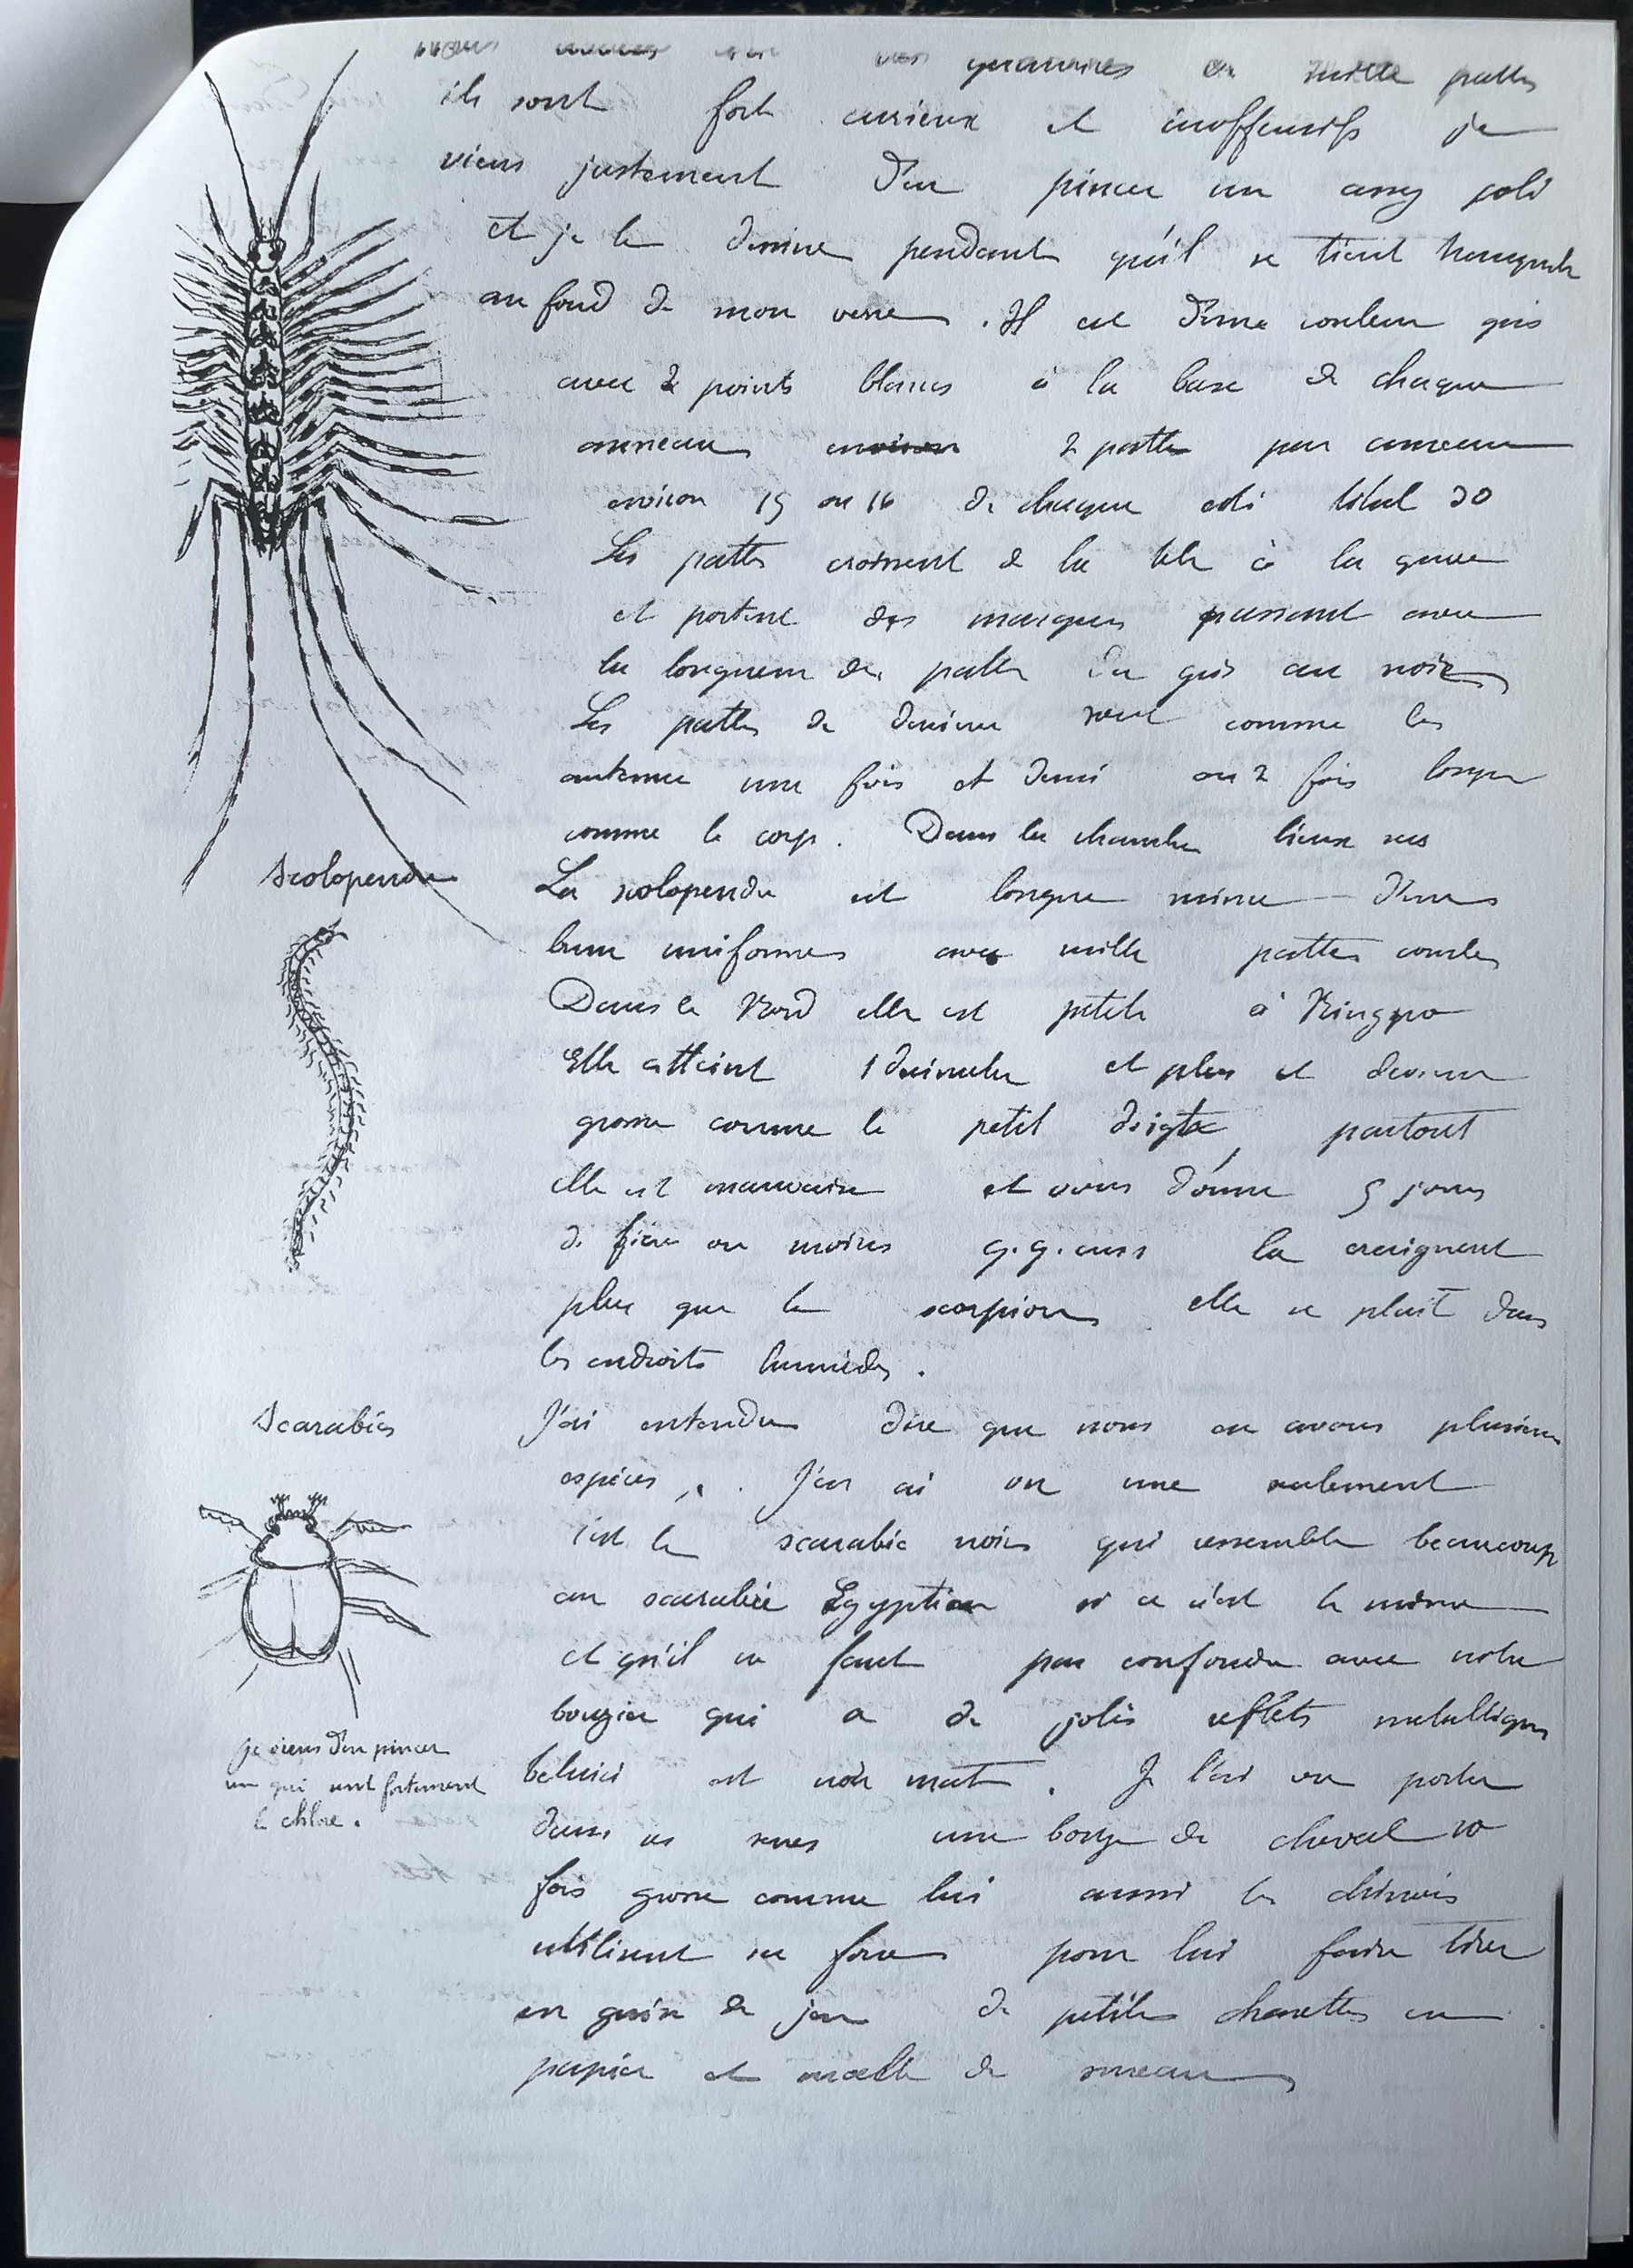 mille pattes
ils sont fort curieux et inoffensifs je
viens justement d'en pincer un assez joli
et je le dessine pendant qu'il se tient tranquille
au fond de mon verre. Il est d'une couleur gris
avec 2 points blancs à la base de chaque
anneau environ 2 pattes par anneau
environ 15 ou 16 de chaque coté total 30
Les pattes croissent de la tete à la queue
et portent des marques passant avec
la longueur des pattes du gris au noir
Les pattes de derriere sont comme les
antennes une fois et demi ou 2 fois longues
comme le corps. Dans la chambre lieux secs
Scolopendre
La scolopendre est longue mince d'un
brun uniforme avec mille pattes courtes
Dans le Nord elle est petite à Ningpo
Elle atteint 1 decimetre et plus et devient
grosse comme le petit doigt, partout
elle est mauvaise et vous donne 5 jours
de fievre au moins q.q. uns la craignent
plus que le scorpion elle se plait dans
les endroits humides.
Scarabées
J'ai entendu dire que nous en avons plusieurs
espèces. J'en ai vu une seulement
c'est le scarabée noir qui ressemble beaucoup
au scarabée Egyptien si ce n'est le même
et qu'il ne faut pas confondre avec notre
bousier qui a de jolis reflets metalliques
celui ci est noir mat. Je l'ai vu porter
dans ses serres une bouse de cheval 10
fois grosse comme lui aussi les chinois
utilisent sa force pour lui faire tirer
en guise de jeu de petites charettes en
papier et moelle de sureau
je viens d'en pincer
un qui sent fortement
le chlore.